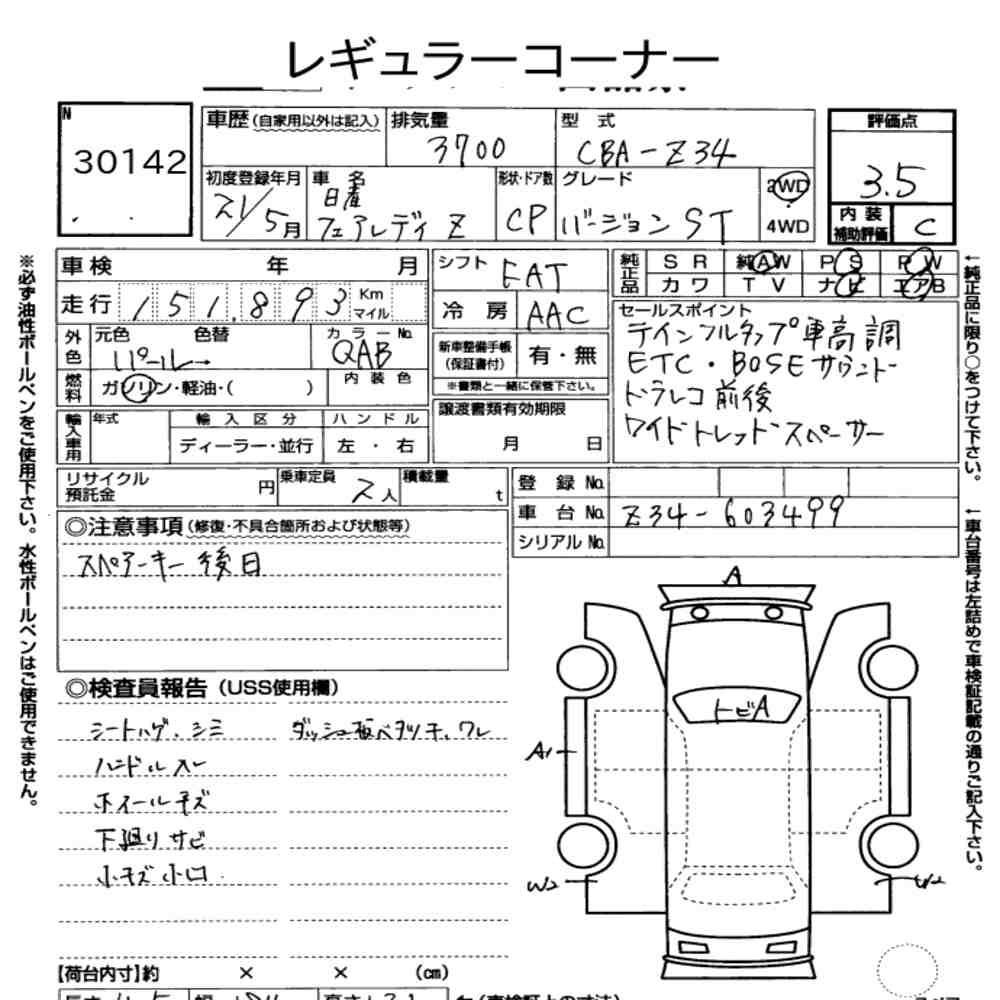 レギュラーコーナー
N
30142
車歴(自家用以外は記入) 排気量 3700 型式 CBA-Z34
初度登録年月 21/5月 車名 日産 フェアレディZ 形状・ドア数 CP グレード バージョンST 2WD 4WD
評価点 3.5
内装補助評価 C
車検 年 月
走行 151,893 Km マイル
シフト FAT
冷房 AAC
純正品 SR 純AW PS PW
カワ TV ナビ エアB
外色 元色 色替 カラーNo.
パール→ QAB
燃料 ガソリン・軽油・( ) 内装色
新車整備手帳(保証書付) 有・無
※書類と一緒に保管下さい。
セールスポイント
テインフルタップ車高調
ETC・BOSEサウンド
ドラレコ前後
ワイドトレッドスペーサー
輸入車用 年式 輸入区分 ハンドル
ディーラー・並行 左・右
譲渡書類有効期限
月 日
リサイクル預託金 円 乗車定員 2人 積載量 t
登録No.
車台No. Z34-603499
シリアルNo.
◎注意事項(修復・不具合箇所および状態等)
スペアーキー後日
◎検査員報告(USS使用欄)
シートハゲ、シミ ダッシュ板ベタツキ、ワレ
ハンドルスレ
ホイールキズ
下廻りサビ
小キズ小凹
A
トビA
A1
W2 W2
【荷台内寸】約 × × (cm)
※必ず油性ボールペンをご使用下さい。水性ボールペンはご使用できません。
←純正品に限り○をつけて下さい。
←車台番号は左詰めで車検証記載の通りご記入下さい。